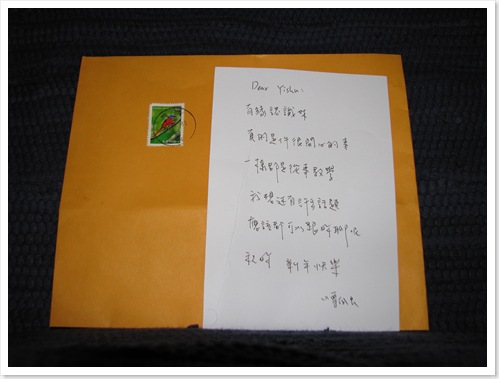 Dear Yishu:
有緣認識妳
真的是件很開心的事
一樣都是從事教學
我想還有許多話題
應該都可以跟妳聊呢
祝妳 新年快樂